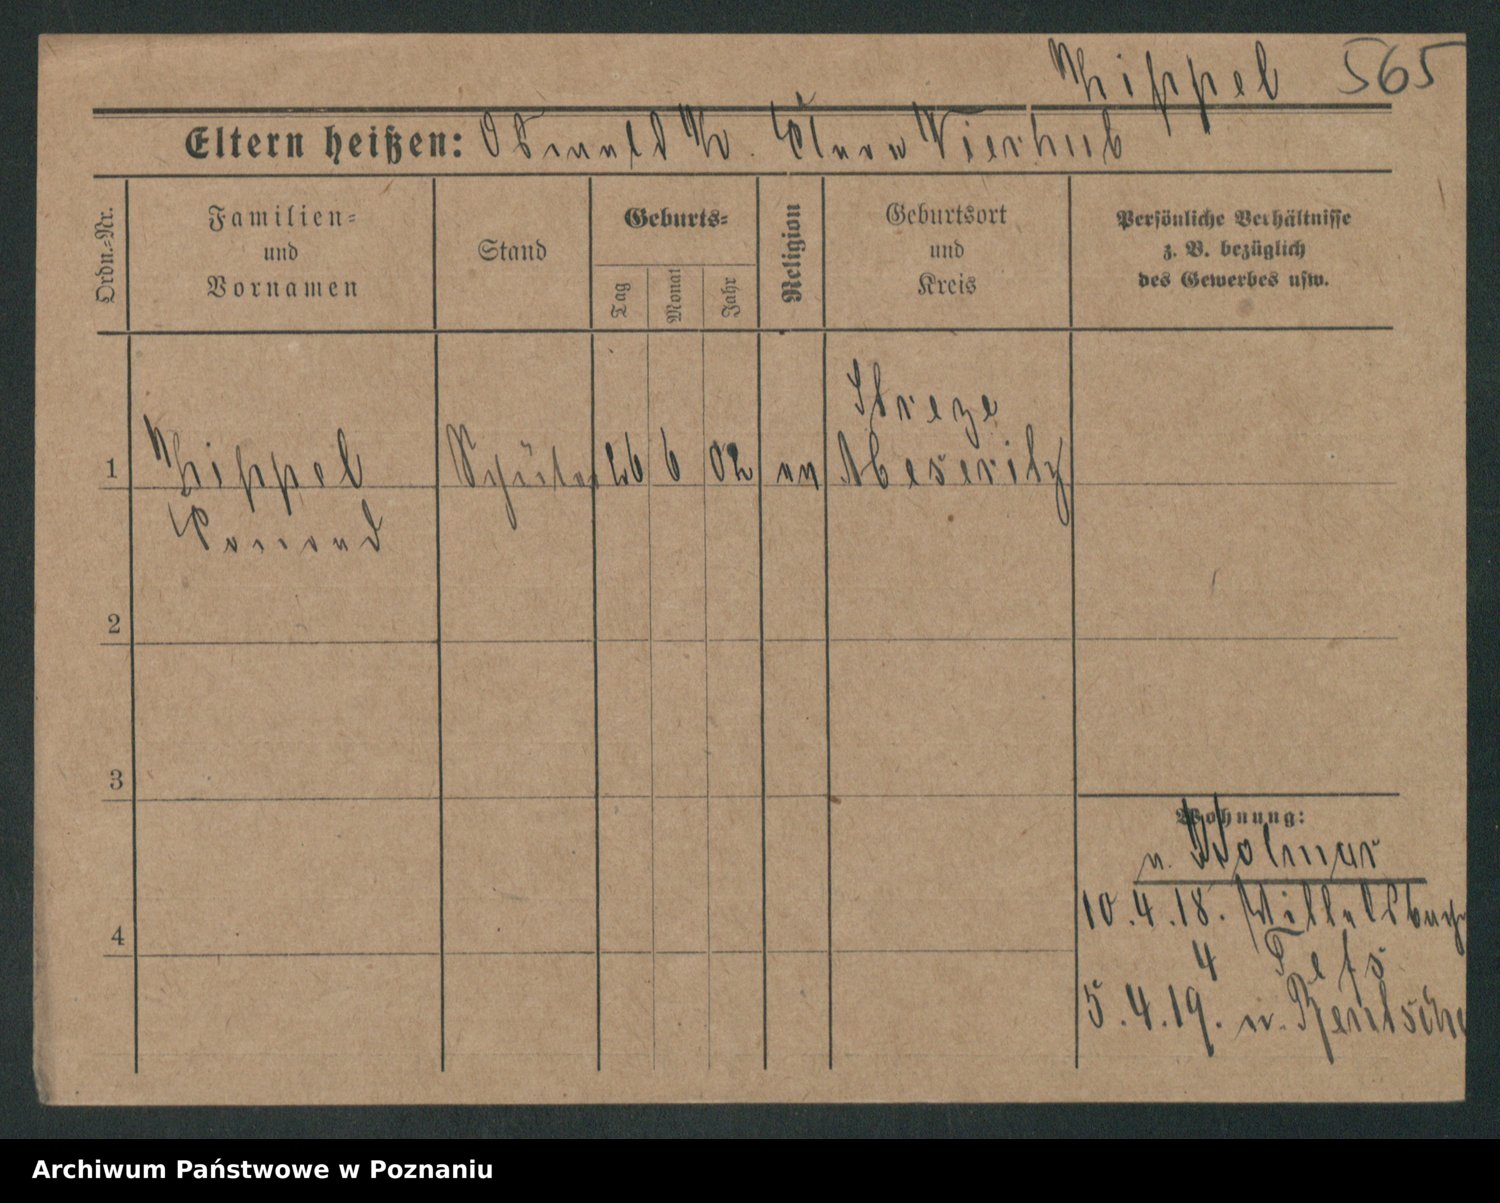 Hippel 565
Eltern heißen: Oswald H. Clara Vierhub
Ordn.-Nr.
Familien-
und
Vornamen
Stand
Geburts-
Tag
Monat
Jahr
Religion
Geburtsort
und
Kreis
Persönliche Verhältnisse
z. B. bezüglich
des Gewerbes usw.
Streze
1 Hippel Schüler 26 6 02 Meseritz
Konrad
2
3
4
Wohnung:
n. Kolmar
10.4.18.
4
5.4.19. n. Bentschen
Archiwum Państwowe w Poznaniu